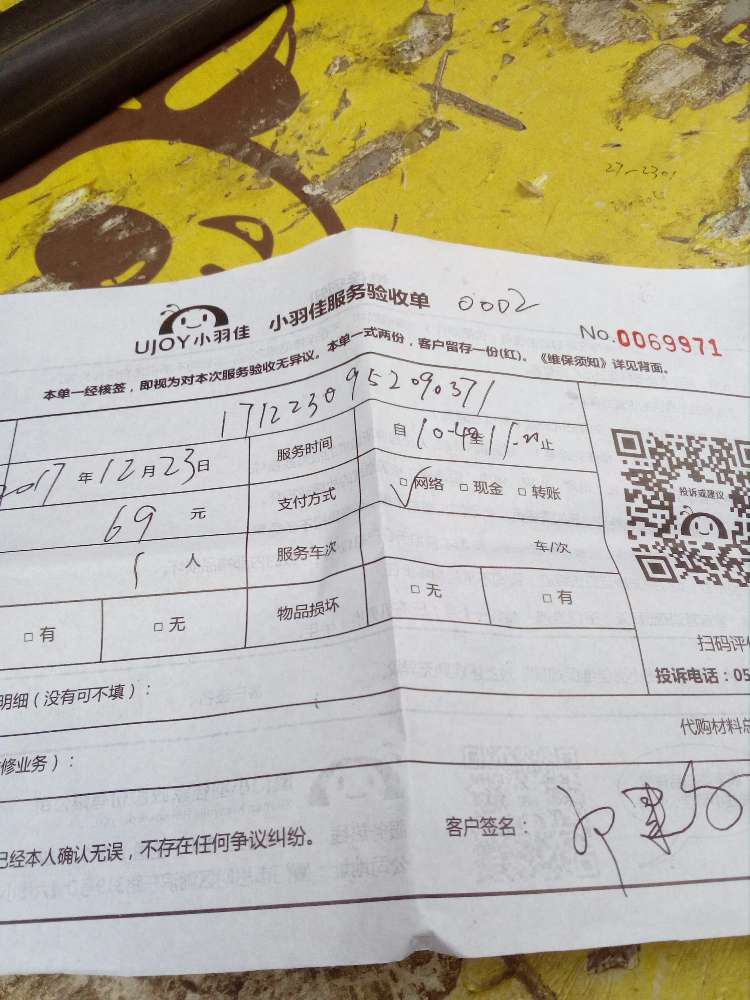 27-2301
UJOY小羽佳 小羽佳服务验收单 0002
No.0069971
本单一经核签，即视为对本次服务验收无异议。本单一式两份，客户留存一份(红)。《维保须知》详见背面。
1712230952090371
2017年12月23日 服务时间 自10:49至11:20止
投诉或建议
69 元 支付方式 □网络 □现金 □转账
1 人 服务车次 车/次
□有 □无 物品损坏 □无 □有
扫码评
投诉电话：05
明细（没有可不填）：
代购材料总
修业务）：
已经本人确认无误，不存在任何争议纠纷。
客户签名：